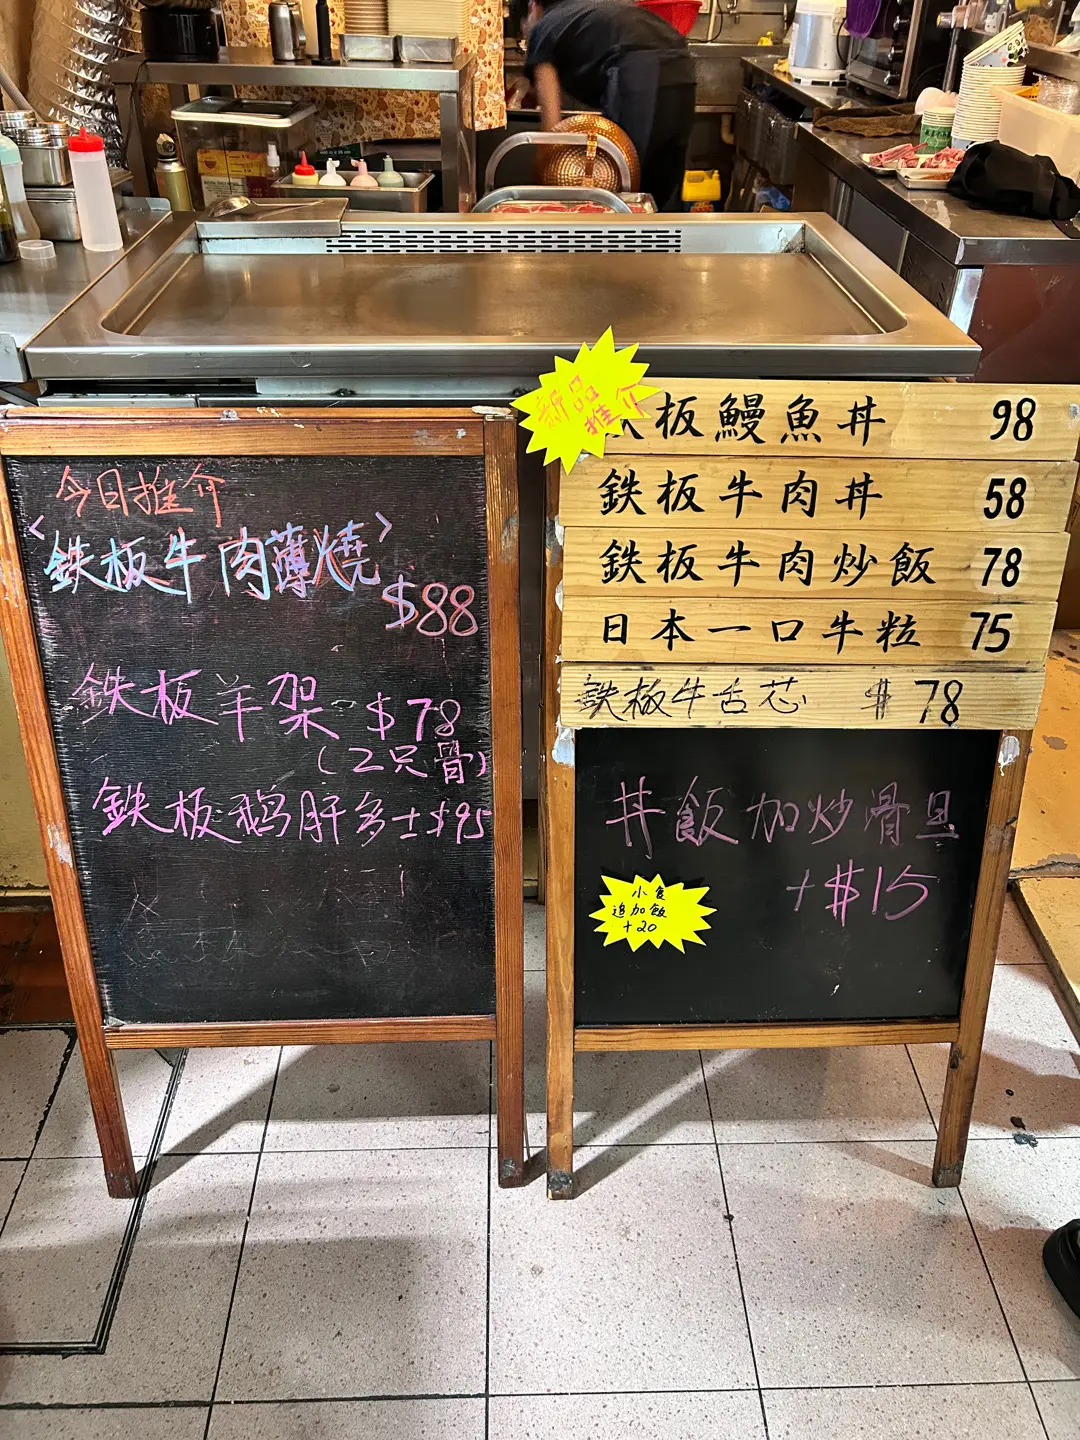 今日推介
<鉄板牛肉薄燒>
$88
鉄板羊架 $78
(2只骨)
鉄板鵝肝多士$95
新品
推介
板鰻魚丼 98
鉄板牛肉丼 58
鉄板牛肉炒飯 78
日本一口牛粒 75
鉄板牛舌芯 $78
丼飯加炒滑旦
+$15
小食
追加飯
+20